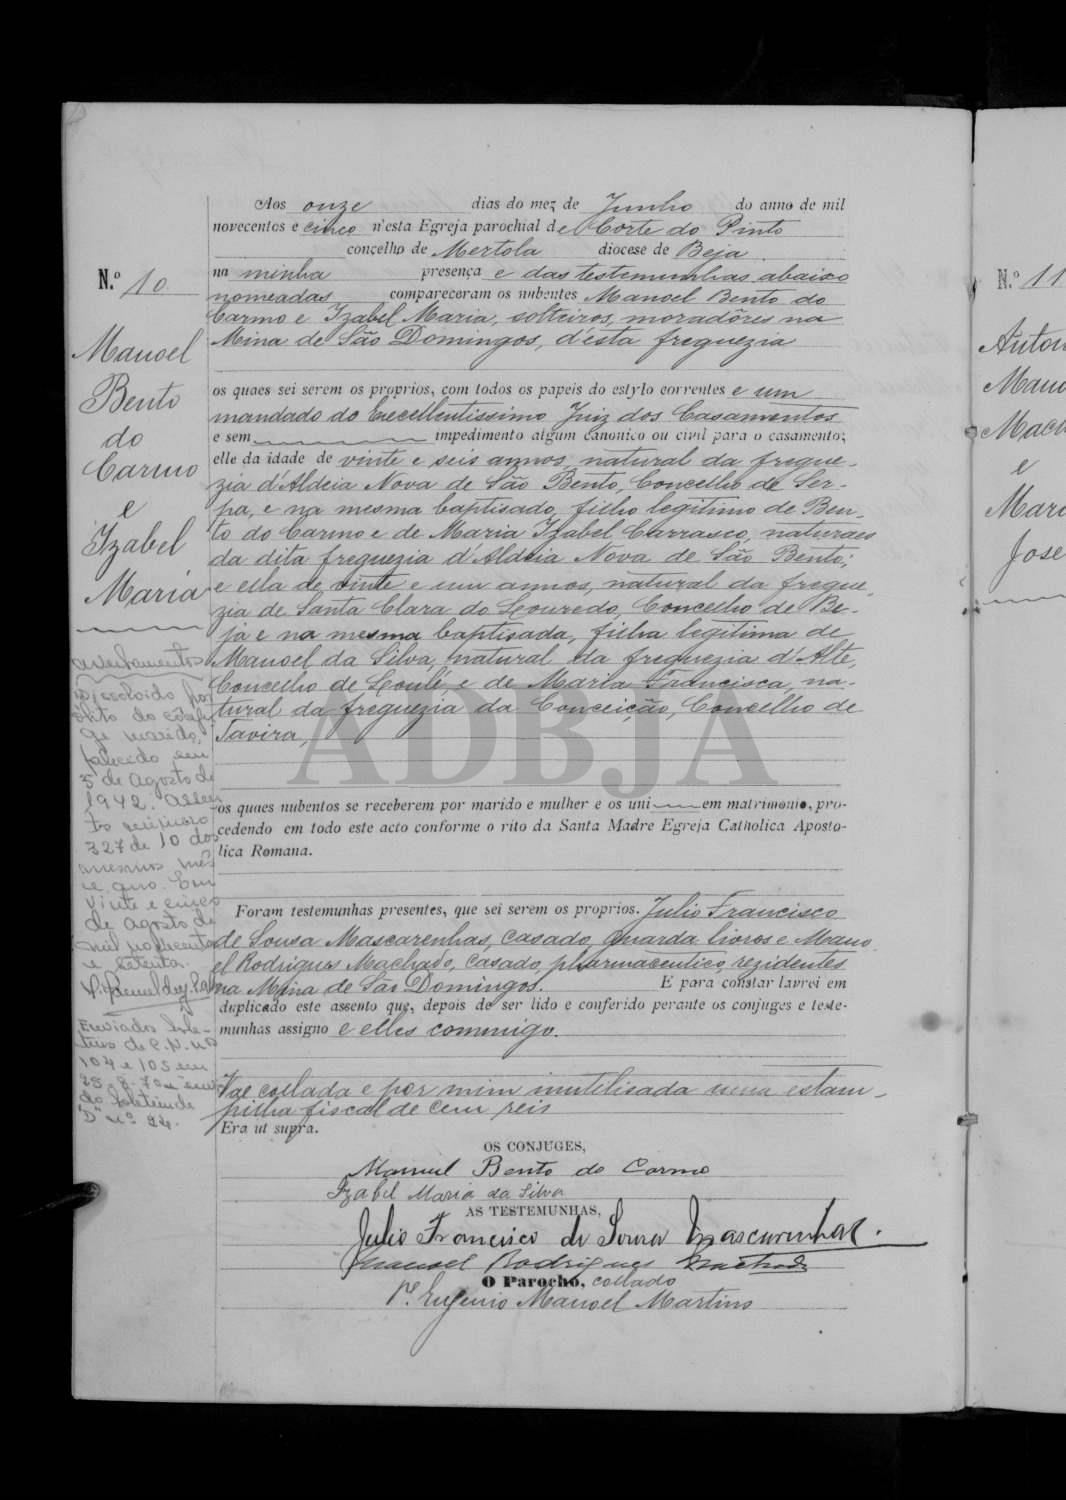 Aos onze dias do mez de Junho do anno de mil
novecentos e cinco n'esta Egreja parochial de Corte do Pinto
concelho de Mertola diocese de Beja
na minha presença e das testemunhas abaixo
nomeadas compareceram os nubentes Manoel Bento do
Carmo e Izabel Maria, solteiros, moradôres na
Mina de São Domingos, d'esta freguezia
os quaes sei serem os proprios, com todos os papeis do estylo correntes e um
mandado do Excellentissimo Juiz dos Casamentos
e sem impedimento algum canonico ou civil para o casamento;
elle da idade de vinte e seis annos, natural da fregue-
zia d'Aldeia Nova de São Bento, Concelho de Ser-
pa, e na mesma baptisado, filho legitimo de Ben-
to do Carmo e de Maria Izabel Carrasco, naturaes
da dita freguezia d'Aldeia Nova de São Bento;
e ella de vinte e um annos, natural da fregue-
zia de Santa Clara do Louredo, Concelho de Be-
ja e na mesma baptisada, filha legitima de
Manoel da Silva, natural da freguezia d'Alte,
Concelho de Loulé, e de Maria Francisca, na-
tural da freguezia da Conceição, Concelho de
Tavira,
os quaes nubentos se receberem por marido e mulher e os uni em matrimonio, pro-
cedendo em todo este acto conforme o rito da Santa Madre Egreja Catholica Aposto-
lica Romana.
Foram testemunhas presentes, que sei serem os proprios. Julio Francisco
de Sousa Mascarenhas, casado, guarda livros e Mano
el Rodrigues Machado, casado, pharmaceutico, rezidentes
na Mina de São Domingos. E para constar lavrei em
duplicado este assento que, depois de ser lido e conferido perante os conjuges e teste-
munhas assigno e elles commigo.
Vae collada e por mim inutilisada uma estam-
pilha fiscal de cem reis
Era ut supra.
OS CONJUGES,
Manuel Bento do Carmo
Izabel Maria da Silva
AS TESTEMUNHAS,
Julio Francisco de Sousa Mascarenhas.
Manoel Rodrigues Machado
O Parocho, collado
Pe. Eugenio Manoel Martins
N.º 10
Manoel
Bento
do
Carmo
e
Izabel
Maria
averbamentos
dissolvido por
óbito do cônju-
ge marido,
falecido em
5 de Agosto de
1942. Assen
to número
327 de 10 dos
mesmos mês
e ano. Em
vinte e cinco
de Agosto de
mil novecentos
e setenta.
Enviados bole-
tins de C.P. nºs
104 e 105 em
25-8-70
do boletim de
"D" nº 94.
ADBJA
N.º 11
Anton
Mano
Mach
e
Mari
Jose